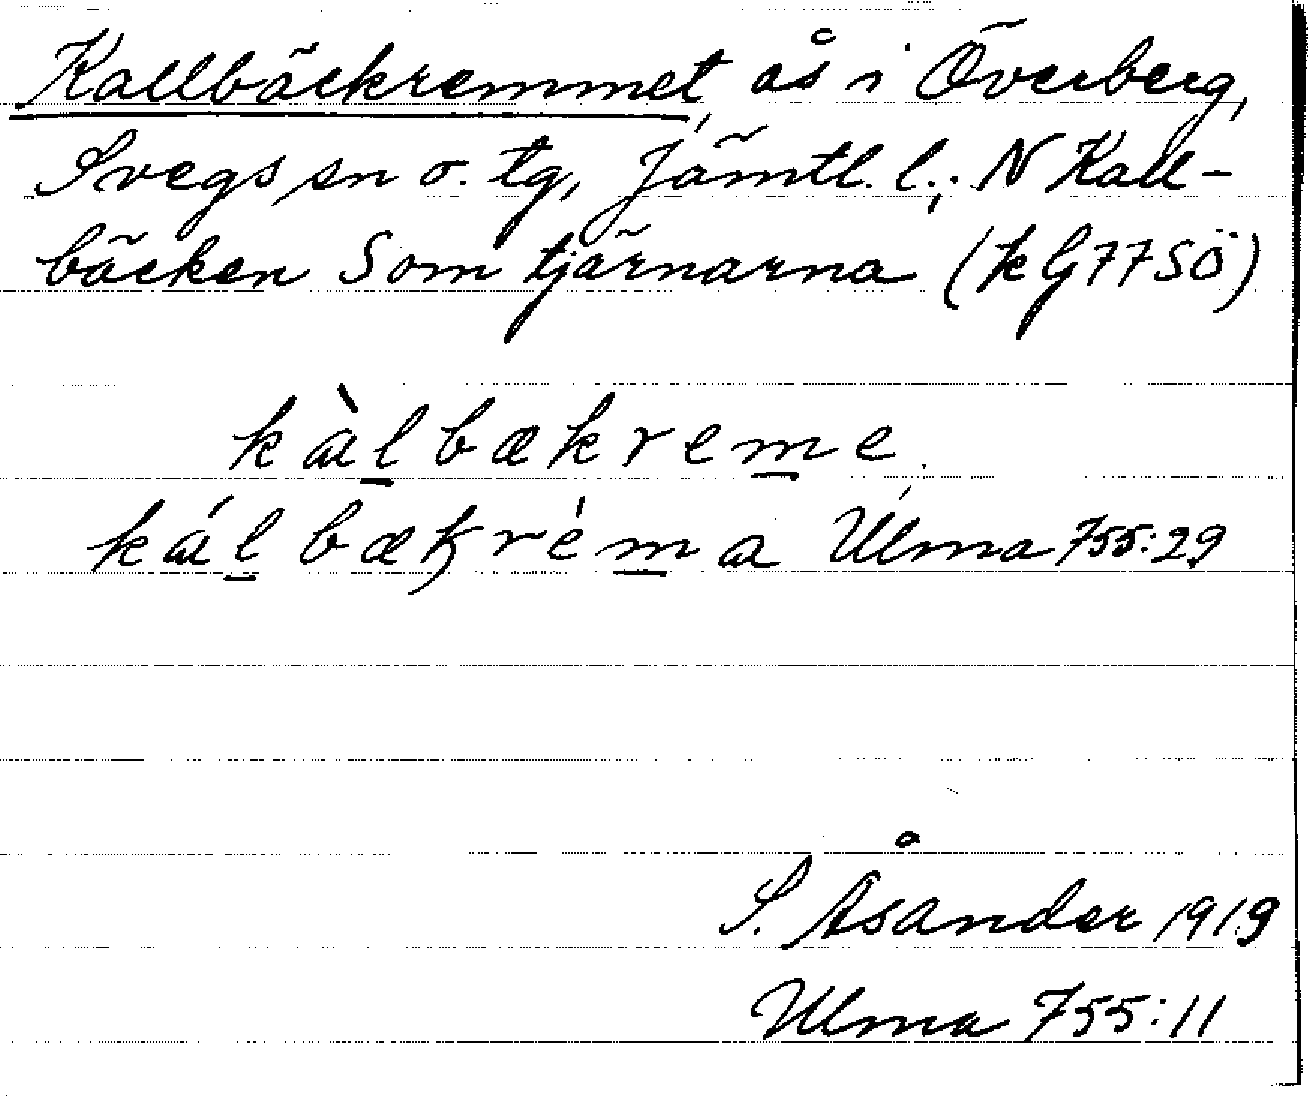 Kallbäckremmet, ås i Överberg,
Svegs sn o. tg, Jämtl. l.; N Kall-
bäcken S om tjärnarna (k G77SÖ)
kàl̲bækrem̲e
kál̲bækrèm̲a Ulma 755:29
S. Åsander 1919
Ulma 755:11